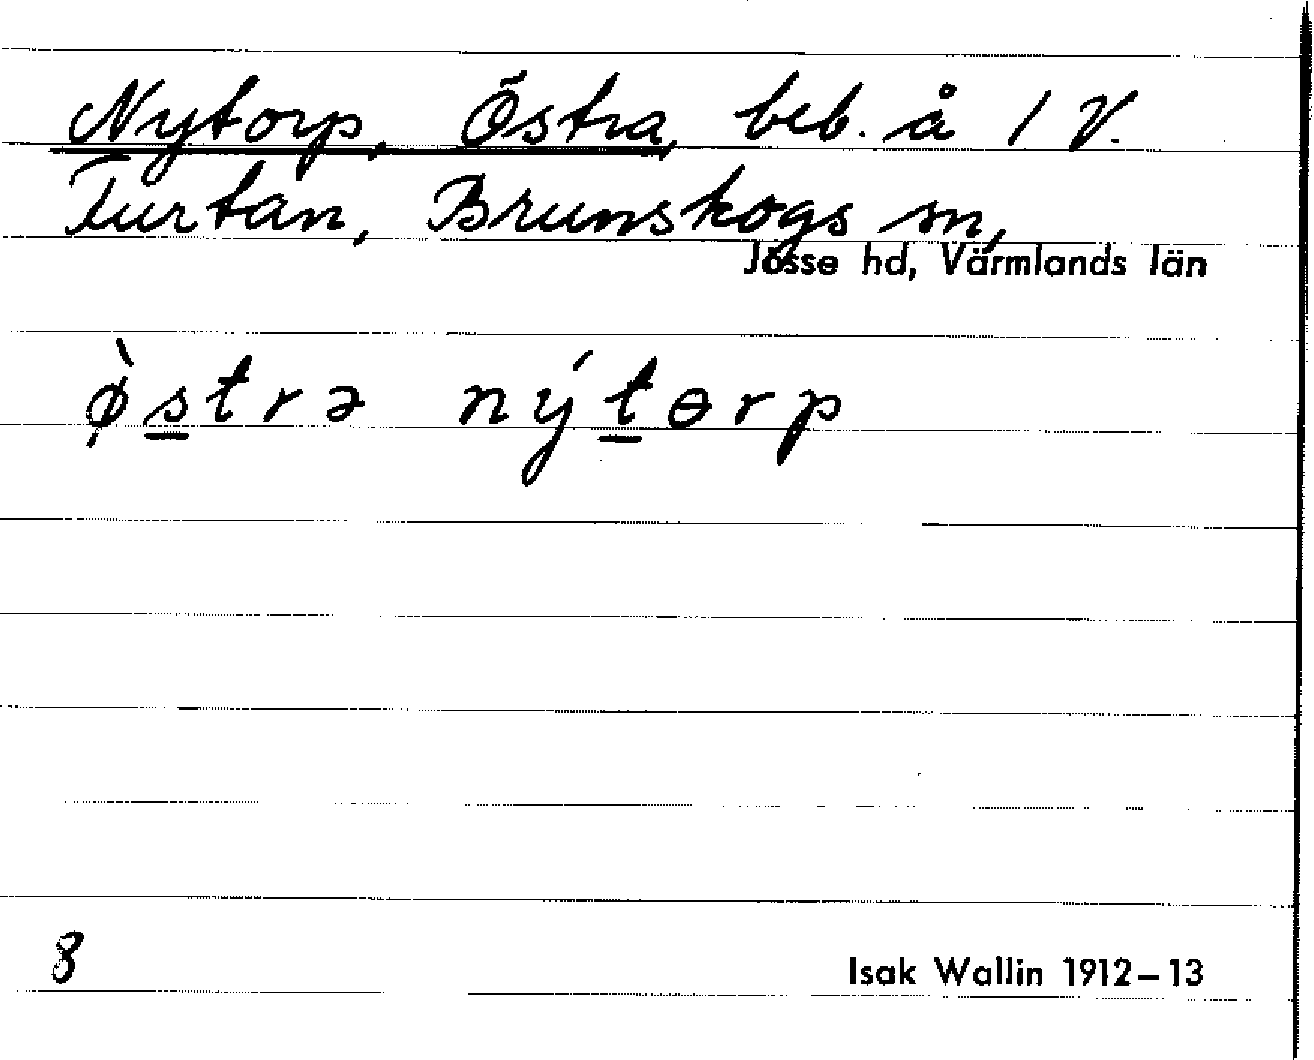 Nytorp, Östra, beb. å 1 V.
Furtan, Brunskogs sn,
Jösse hd, Värmlands län
ø̀s̲trə nýt̲ɵrp
8
Isak Wallin 1912–13